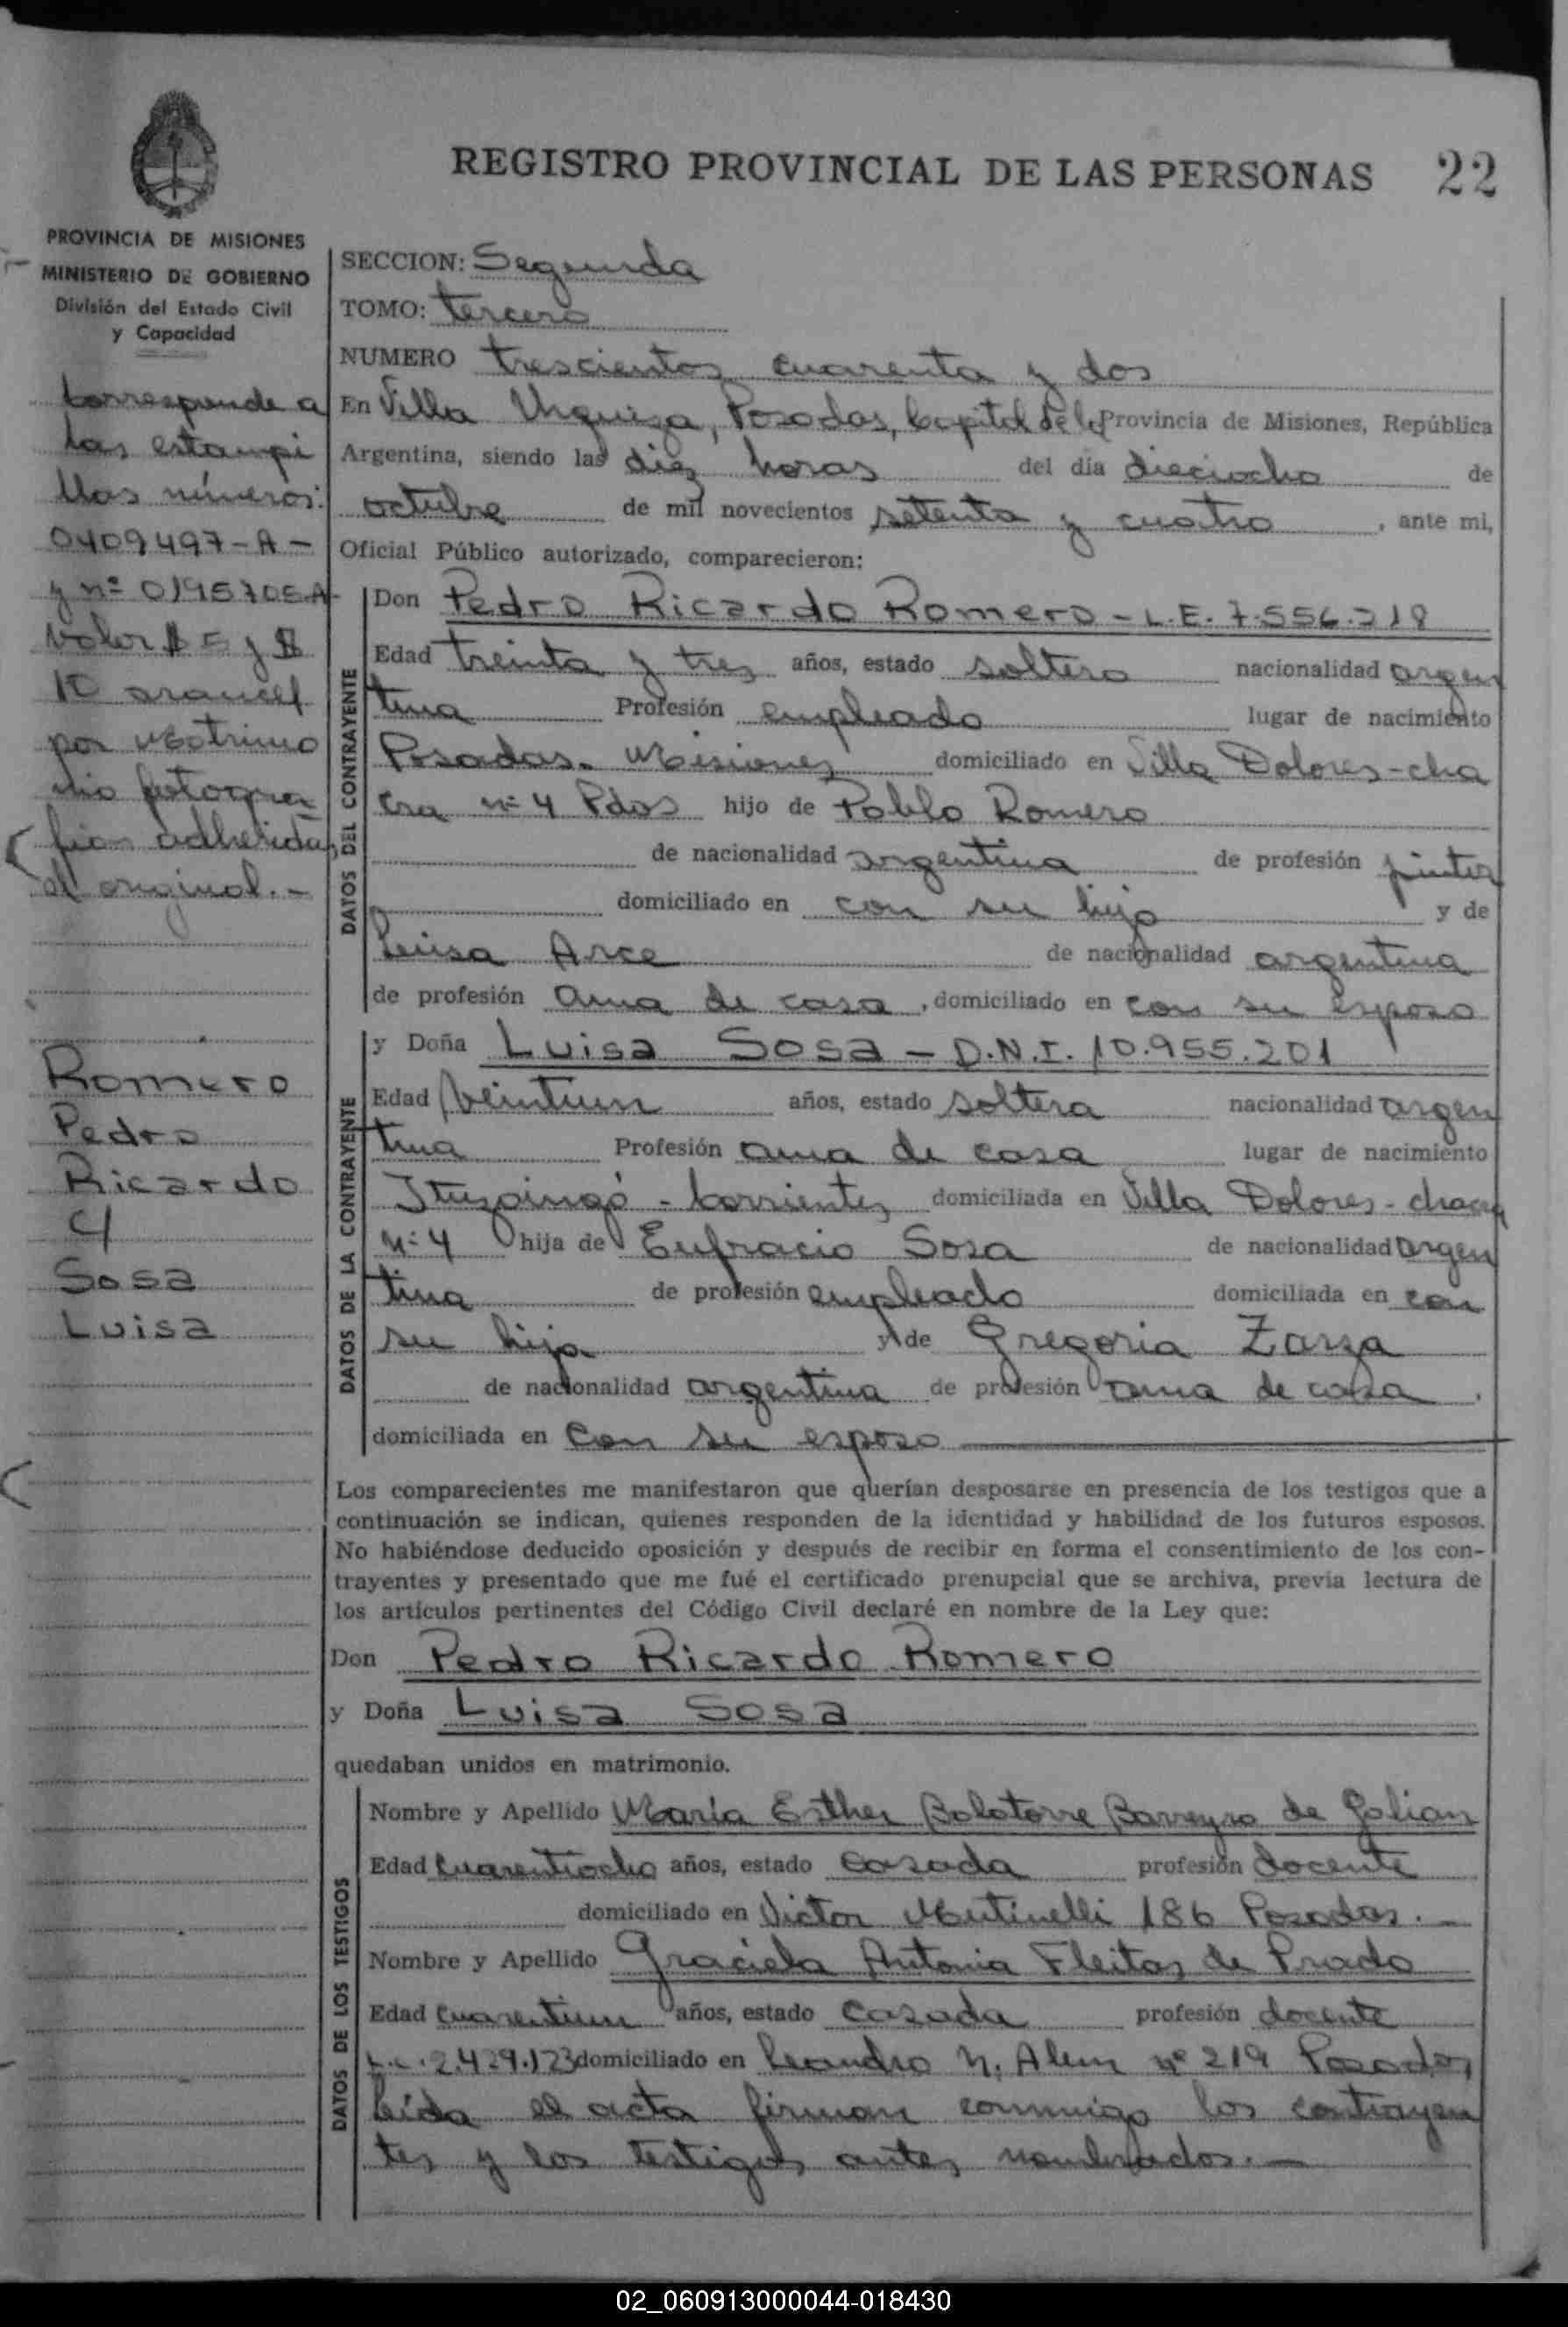 REGISTRO PROVINCIAL DE LAS PERSONAS 22
PROVINCIA DE MISIONES
MINISTERIO DE GOBIERNO
División del Estado Civil
y Capacidad
Corresponde a
las estampi
llas números:
0409497-A-
y nº 0195705-A-
Valor $ 5 y $
10 arancel
por matrimo
nio fotogra
fias adheridas
al original.-
Romero
Pedro
Ricardo
c/
Sosa
Luisa
SECCION: Segunda
TOMO: tercero
NUMERO trescientos cuarenta y dos
En Villa Urquiza, Posadas, Capital de la Provincia de Misiones, República
Argentina, siendo las diez horas del día dieciocho de
octubre de mil novecientos setenta y cuatro, ante mi,
Oficial Público autorizado, comparecieron:
DATOS DEL CONTRAYENTE
Don Pedro Ricardo Romero - L.E. 7.556.218
Edad treinta y tres años, estado soltero nacionalidad argen
tina Profesión empleado lugar de nacimiento
Posadas. Misiones domiciliado en Villa Dolores-cha
cra nº 4 Pdas hijo de Pablo Romero
de nacionalidad argentina de profesión pintor
domiciliado en con su hijo y de
Luisa Arce de nacionalidad argentina
de profesión ama de casa, domiciliado en con su esposo
DATOS DE LA CONTRAYENTE
y Doña Luisa Sosa - D.N.I. 10.955.201
Edad veintiun años, estado soltera nacionalidad argen
tina Profesión ama de casa lugar de nacimiento
Ituzaingó - Corrientes domiciliada en Villa Dolores - chacra
Nº 4 hija de Eufracio Sosa de nacionalidad argen
tina de profesión empleado domiciliada en con
su hija y de Gregoria Zarza
de nacionalidad argentina de profesión ama de casa,
domiciliada en con su esposo
Los comparecientes me manifestaron que querían desposarse en presencia de los testigos que a
continuación se indican, quienes responden de la identidad y habilidad de los futuros esposos.
No habiéndose deducido oposición y después de recibir en forma el consentimiento de los con-
trayentes y presentado que me fué el certificado prenupcial que se archiva, previa lectura de
los artículos pertinentes del Código Civil declaré en nombre de la Ley que:
Don Pedro Ricardo Romero
y Doña Luisa Sosa
quedaban unidos en matrimonio.
DATOS DE LOS TESTIGOS
Nombre y Apellido María Esther Barreyro de Galian
Edad cuarentiocho años, estado casada profesión docente
domiciliado en Victor 186 Posadas.-
Nombre y Apellido Graciela Antonia Fleitas de Prado
Edad cuarentiun años, estado casada profesión docente
L.C. 2.429.123 domiciliado en Leandro N. Alem nº 219 Posadas
leída el acta firman conmigo los contrayen
tes y los testigos antes nombrados.-
02_060913000044-018430